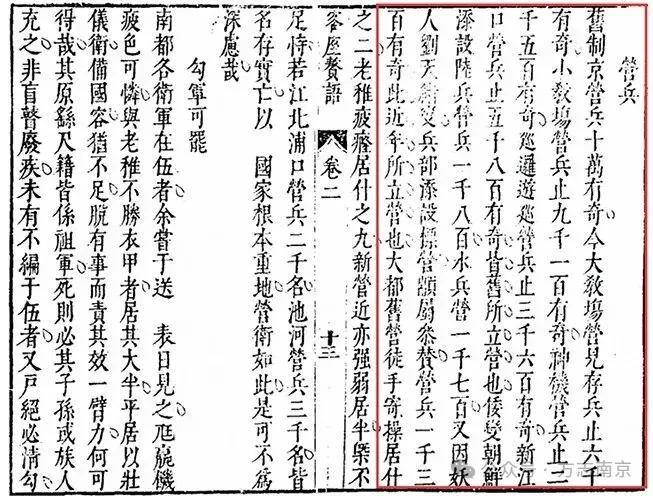 營兵
舊制京營兵十萬有奇今大敎塲營見存兵止六千
有奇小敎塲營兵止九千一百有奇神機營兵止二
千五百有奇巡邏遊巡營兵止三千六百有奇新江
口營兵止五千八百有奇皆舊所立營也倭變朝鮮
添設陸兵營兵一千八百水兵營一千七百又因妖
人劉天緒變兵部添設標營顓扇叅賛營兵一千三
百有奇此近年所立營也大都舊營徒手寄操居什
之二老稚疲癃居什之九新營近亦强弱居半槩不
客座贅語 卷二 十三
足恃若江北浦口營兵二千名池河營兵三千名皆
名存實亡以 國家根本重地營衛如此是可不爲
深慮哉
勾軍可罷
南都各衛軍在伍者余嘗于送 表日見之尫羸饑
疲色可憐與老稚不勝衣甲者居其大半平居以壯
儀衛備國容猶不足脫有事而責其效一臂力何可
得哉其原繇尺籍皆係祖軍死則必其子孫或族人
充之非盲瞽廢疾未有不編于伍者又戶絕必清勾
公众号 · 方志南京